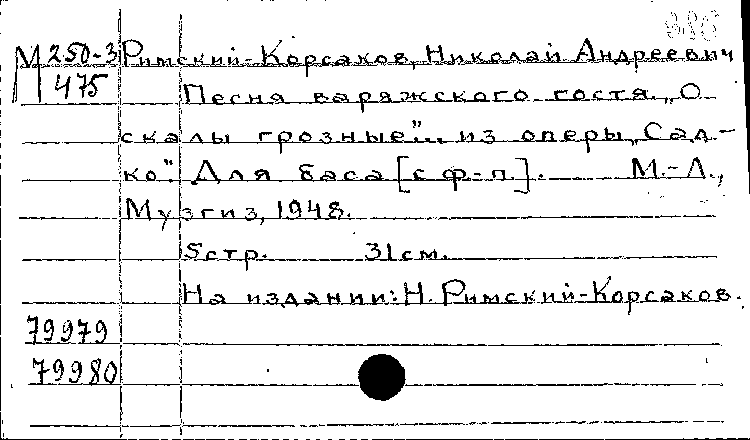 М 250-3 Римский-Корсаков, Николай Андреевич
475 Песня варяжского гостя „О
скалы грозные"... из оперы „Сад-
ко". Для баса [с ф-п.]. М.-Л.,
Музгиз, 1948.
5 стр. 31 см.
На издании: Н. Римский-Корсаков.
79979
79980